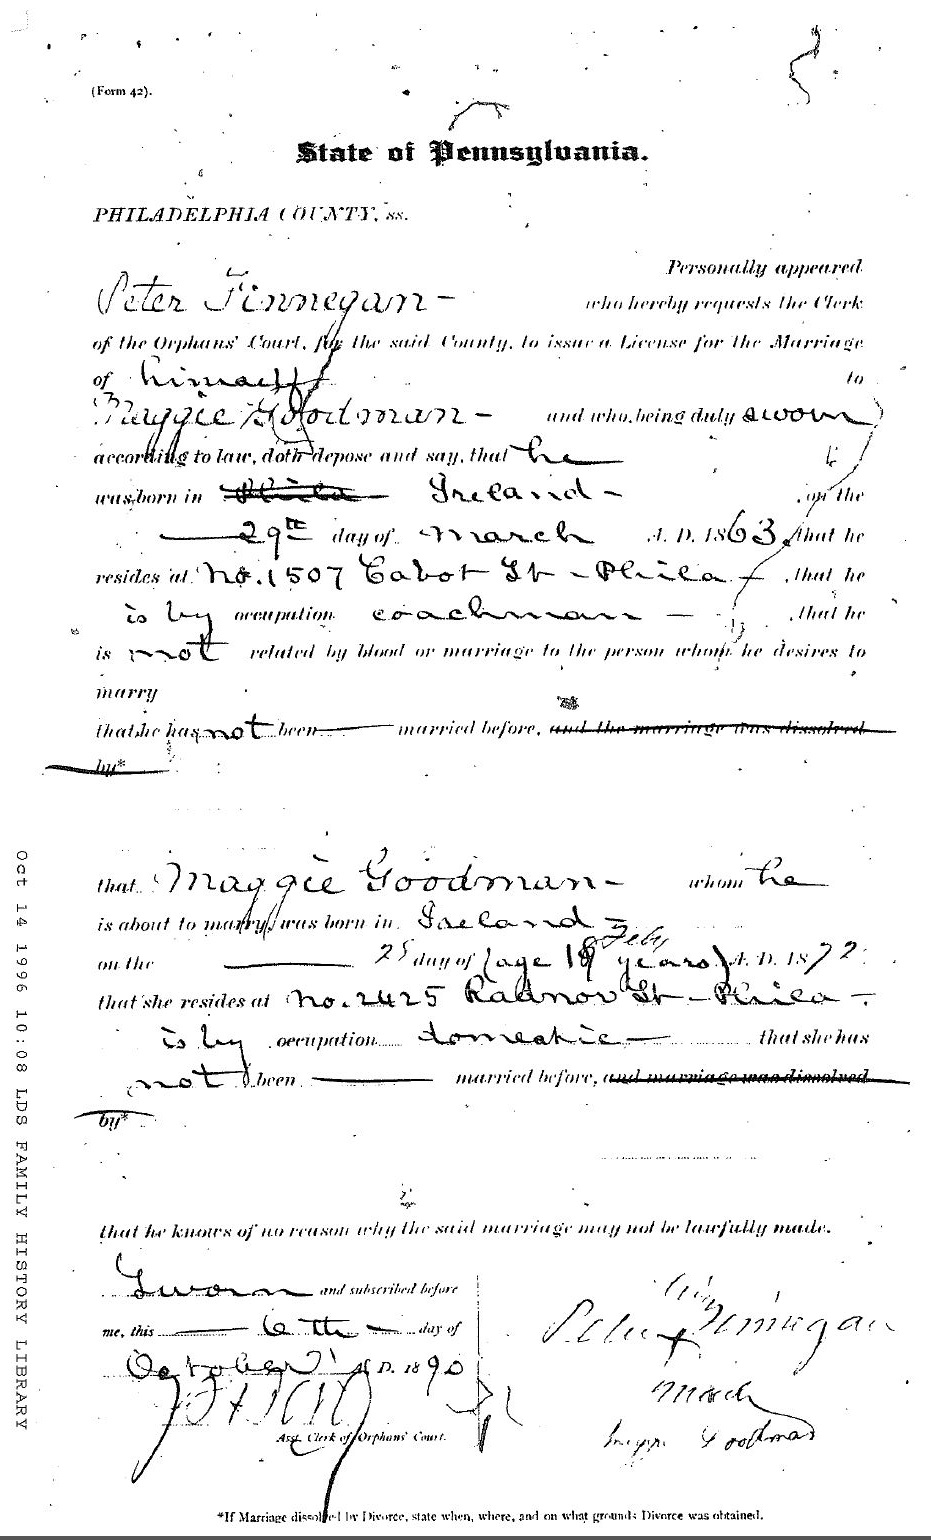 (Form 42).
State of Pennsylvania.
PHILADELPHIA COUNTY, ss.
Personally appeared
Peter Finnegan - who hereby requests the Clerk
of the Orphans' Court, for the said County, to issue a License for the Marriage
of himself to
Maggie Goodman - and who, being duly sworn
according to law, doth depose and say, that he
was born in Phila Ireland - , on the
29th day of March A. D. 1863, that he
resides at No. 1507 Cabot St - Phila - , that he
is by occupation coachman - , that he
is not related by blood or marriage to the person whom he desires to
marry
that he has not been married before, and the marriage was dissolved
by*
that Maggie Goodman - whom he
is about to marry, was born in Ireland -
Feby
on the 25 day of (age 18 years) A. D. 1872.
that she resides at No. 2425 Radnor St - Phila -
is by occupation domestic - that she has
not been married before, and marriage was dissolved
by*
that he knows of no reason why the said marriage may not be lawfully made.
Sworn and subscribed before
me, this 6th day of
October A. D. 1890
Asst. Clerk of Orphans' Court.
his
Peter x Finnegan
mark
Maggie Goodman
*If Marriage dissolved by Divorce, state when, where, and on what grounds Divorce was obtained.
Oct 14 1996 10:08 LDS FAMILY HISTORY LIBRARY